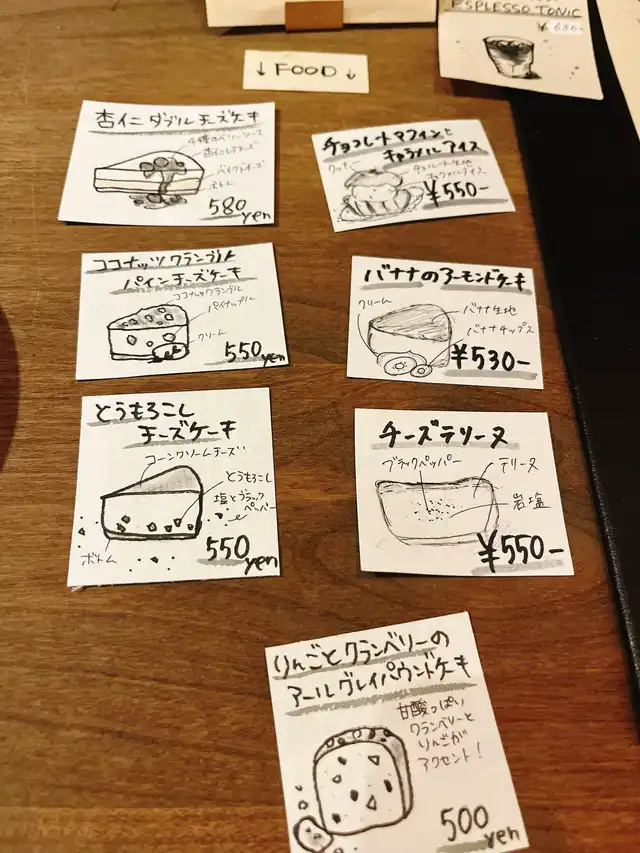 ESPLESSO TONIC
¥ 630-
↓ FOOD ↓
杏仁ダブルチーズケーキ
4種のベリーソース
杏仁レアチーズ
ベイクドチーズ
ボトム
580 yen
チョコレートマフィンと
キャラメルアイス
クッキー
チョコレート生地
キャラメルアイス
¥550-
ココナッツクランブル
パインチーズケーキ
ココナックランブル
パイナップル
クリーム
550 yen
バナナのアーモンドケーキ
クリーム
バナナ生地
バナナチップス
¥530-
とうもろこし
チーズケーキ
コーンクリームチーズ
とうもろこし
塩とブラック
ペッパー
ボトム
550 yen
チーズテリーヌ
ブラックペッパー
テリーヌ
岩塩
¥550-
りんごとクランベリーの
アールグレイパウンドケーキ
甘酸っぱい
クランベリーと
りんごが
アクセント!
500 yen